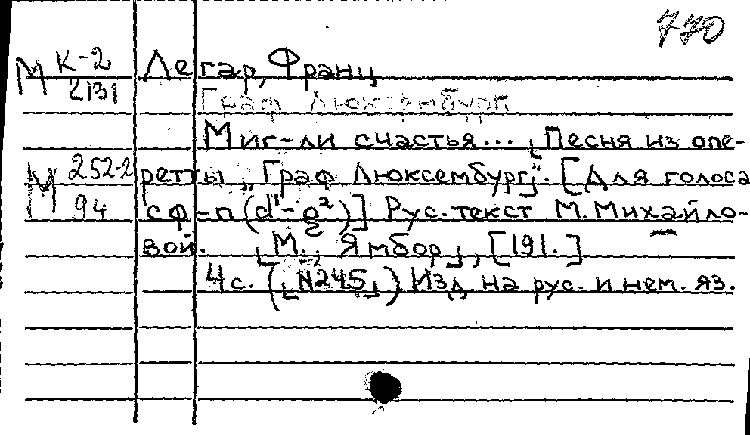 770
М К-2
2131
Легар, Франц
Граф Люксембург
Миг-ли счастья... [Песня из опе-
М 252-2
94
ретты „Граф Люксембург“. [Для голоса
с ф-п (d¹-g²)] Рус. текст М. Михайло-
вой. [М., Ямбор], [191.]
4 с. ([N245]) Изд. на рус. и нем. яз.